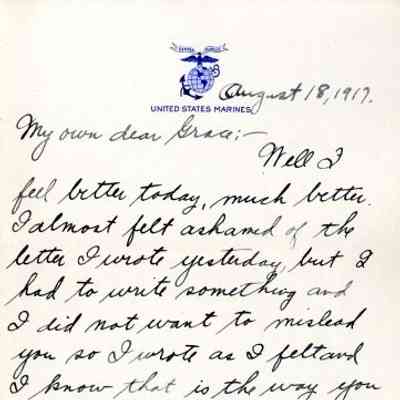 SEMPER FIDELIS
UNITED STATES MARINES
August 18, 1917.
My own dear Grace:-
Well I
feel better today, much better.
I almost felt ashamed of the
letter I wrote yesterday, but I
had to write something and
I did not want to mislead
you so I wrote as I felt and
I know that is the way you